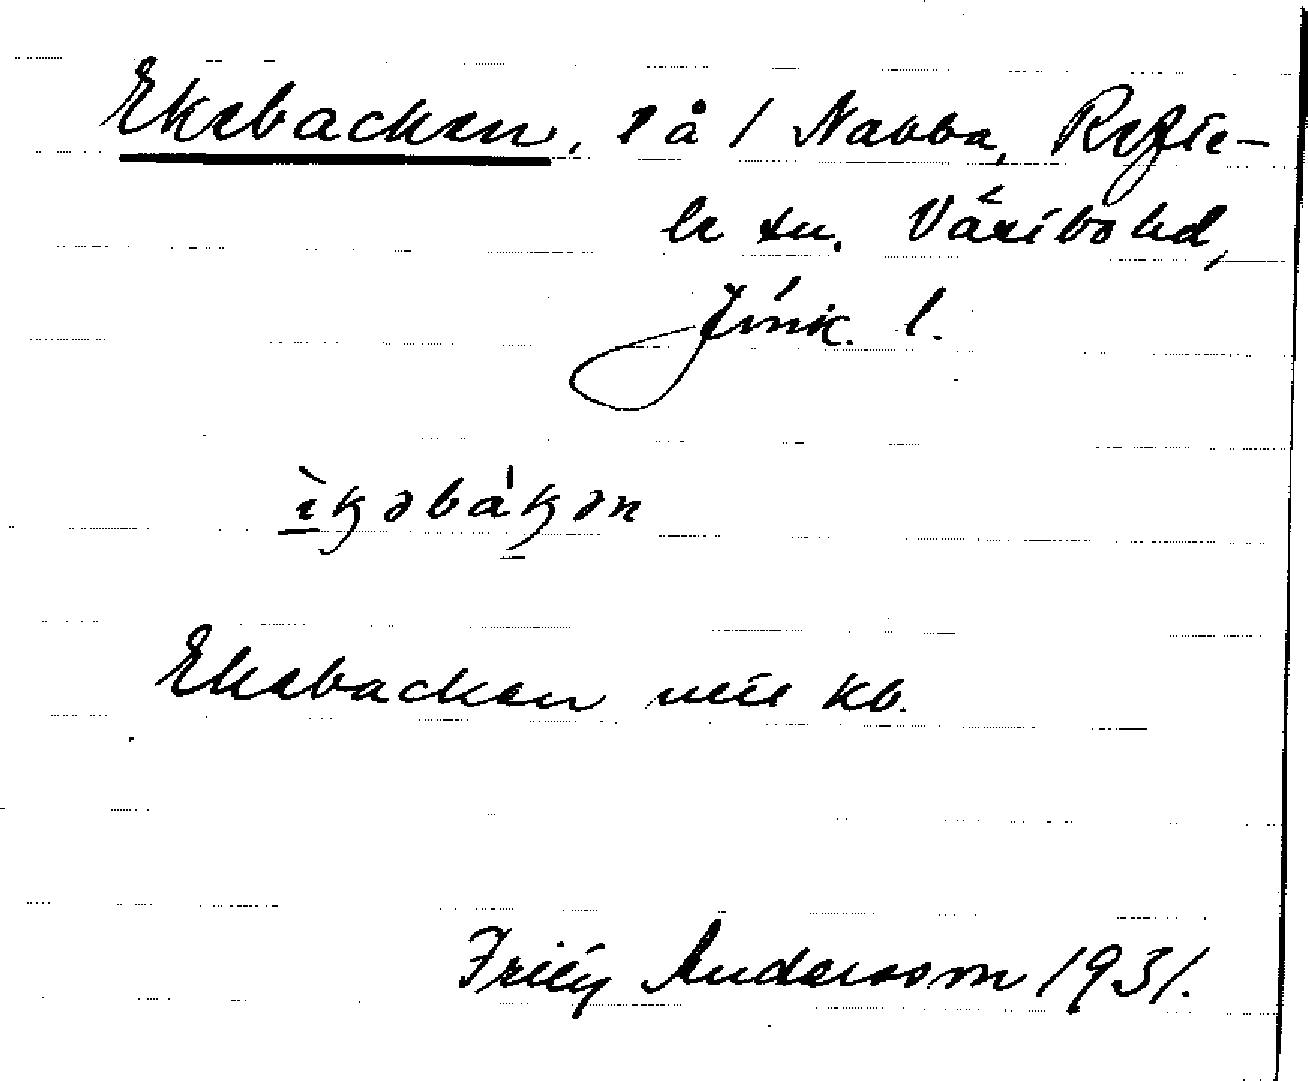 Ekebacken, l å 1 Nabba, Refte-
le sn. Västbo hd,
Jönk. l.
ìkəbákən
Ekebacken utt kb.
Frity Andersson 1931.